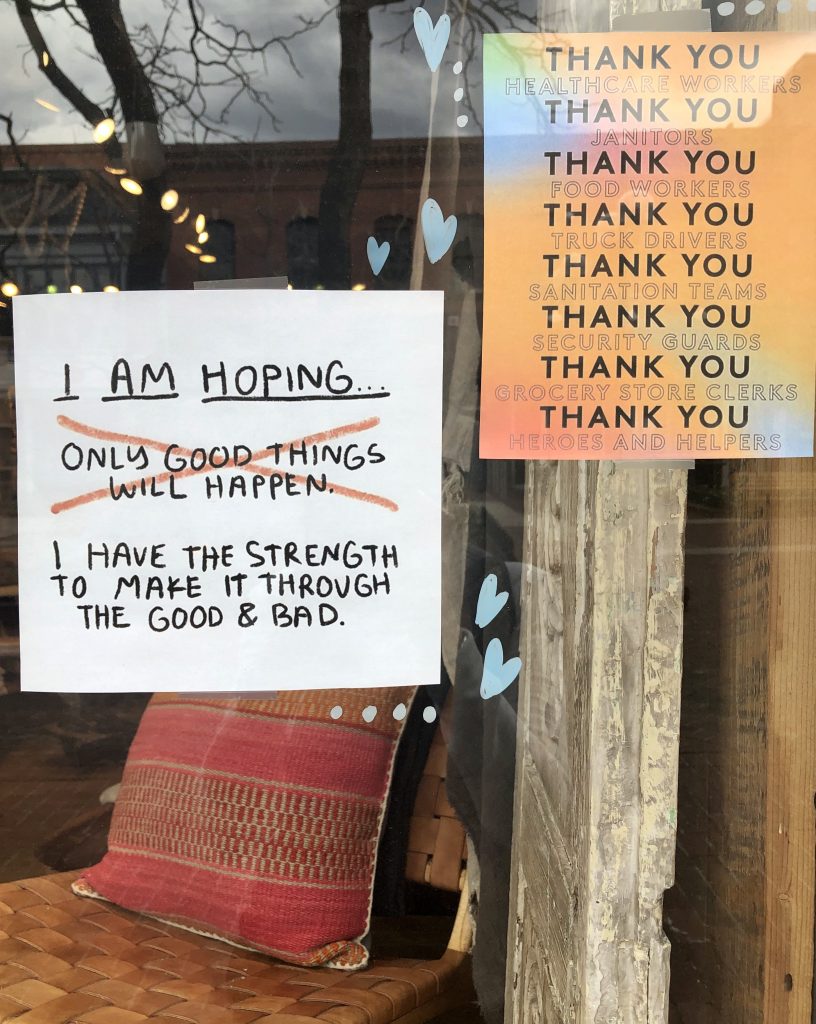 I AM HOPING...
ONLY GOOD THINGS
WILL HAPPEN.
I HAVE THE STRENGTH
TO MAKE IT THROUGH
THE GOOD & BAD.
THANK YOU
HEALTHCARE WORKERS
THANK YOU
JANITORS
THANK YOU
FOOD WORKERS
THANK YOU
TRUCK DRIVERS
THANK YOU
SANITATION TEAMS
THANK YOU
SECURITY GUARDS
THANK YOU
GROCERY STORE CLERKS
THANK YOU
HEROES AND HELPERS